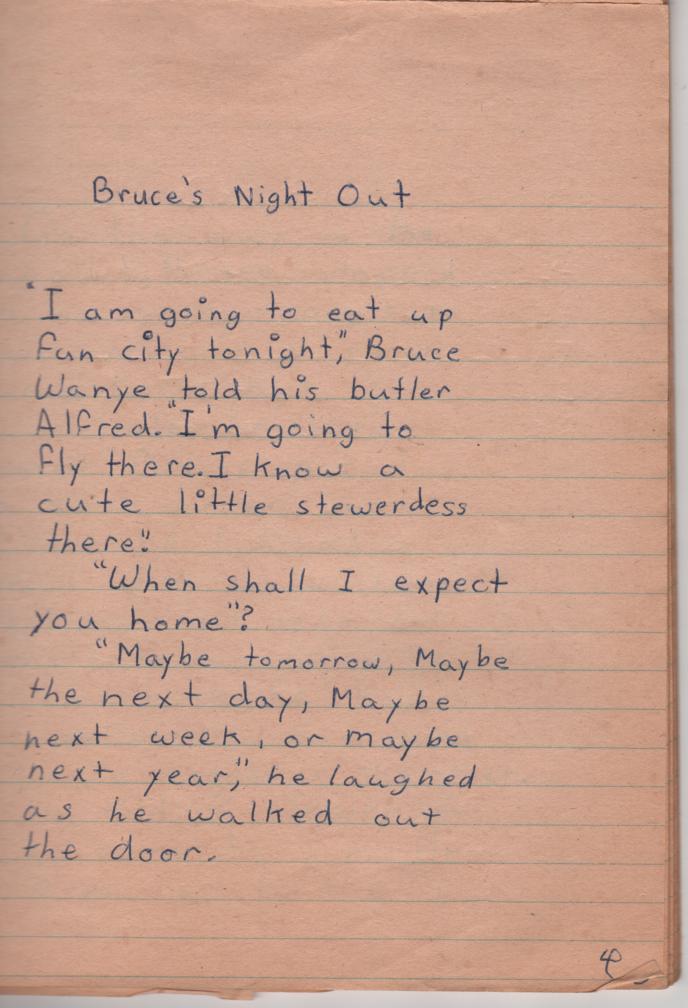 Bruce's Night Out
"I am going to eat up
fun city tonight," Bruce
Wanye told his butler
Alfred. "I'm going to
fly there. I know a
cute little stewerdess
there."
"When shall I expect
you home"?
"Maybe tomorrow, Maybe
the next day, Maybe
next week, or maybe
next year," he laughed
as he walked out
the door.
4